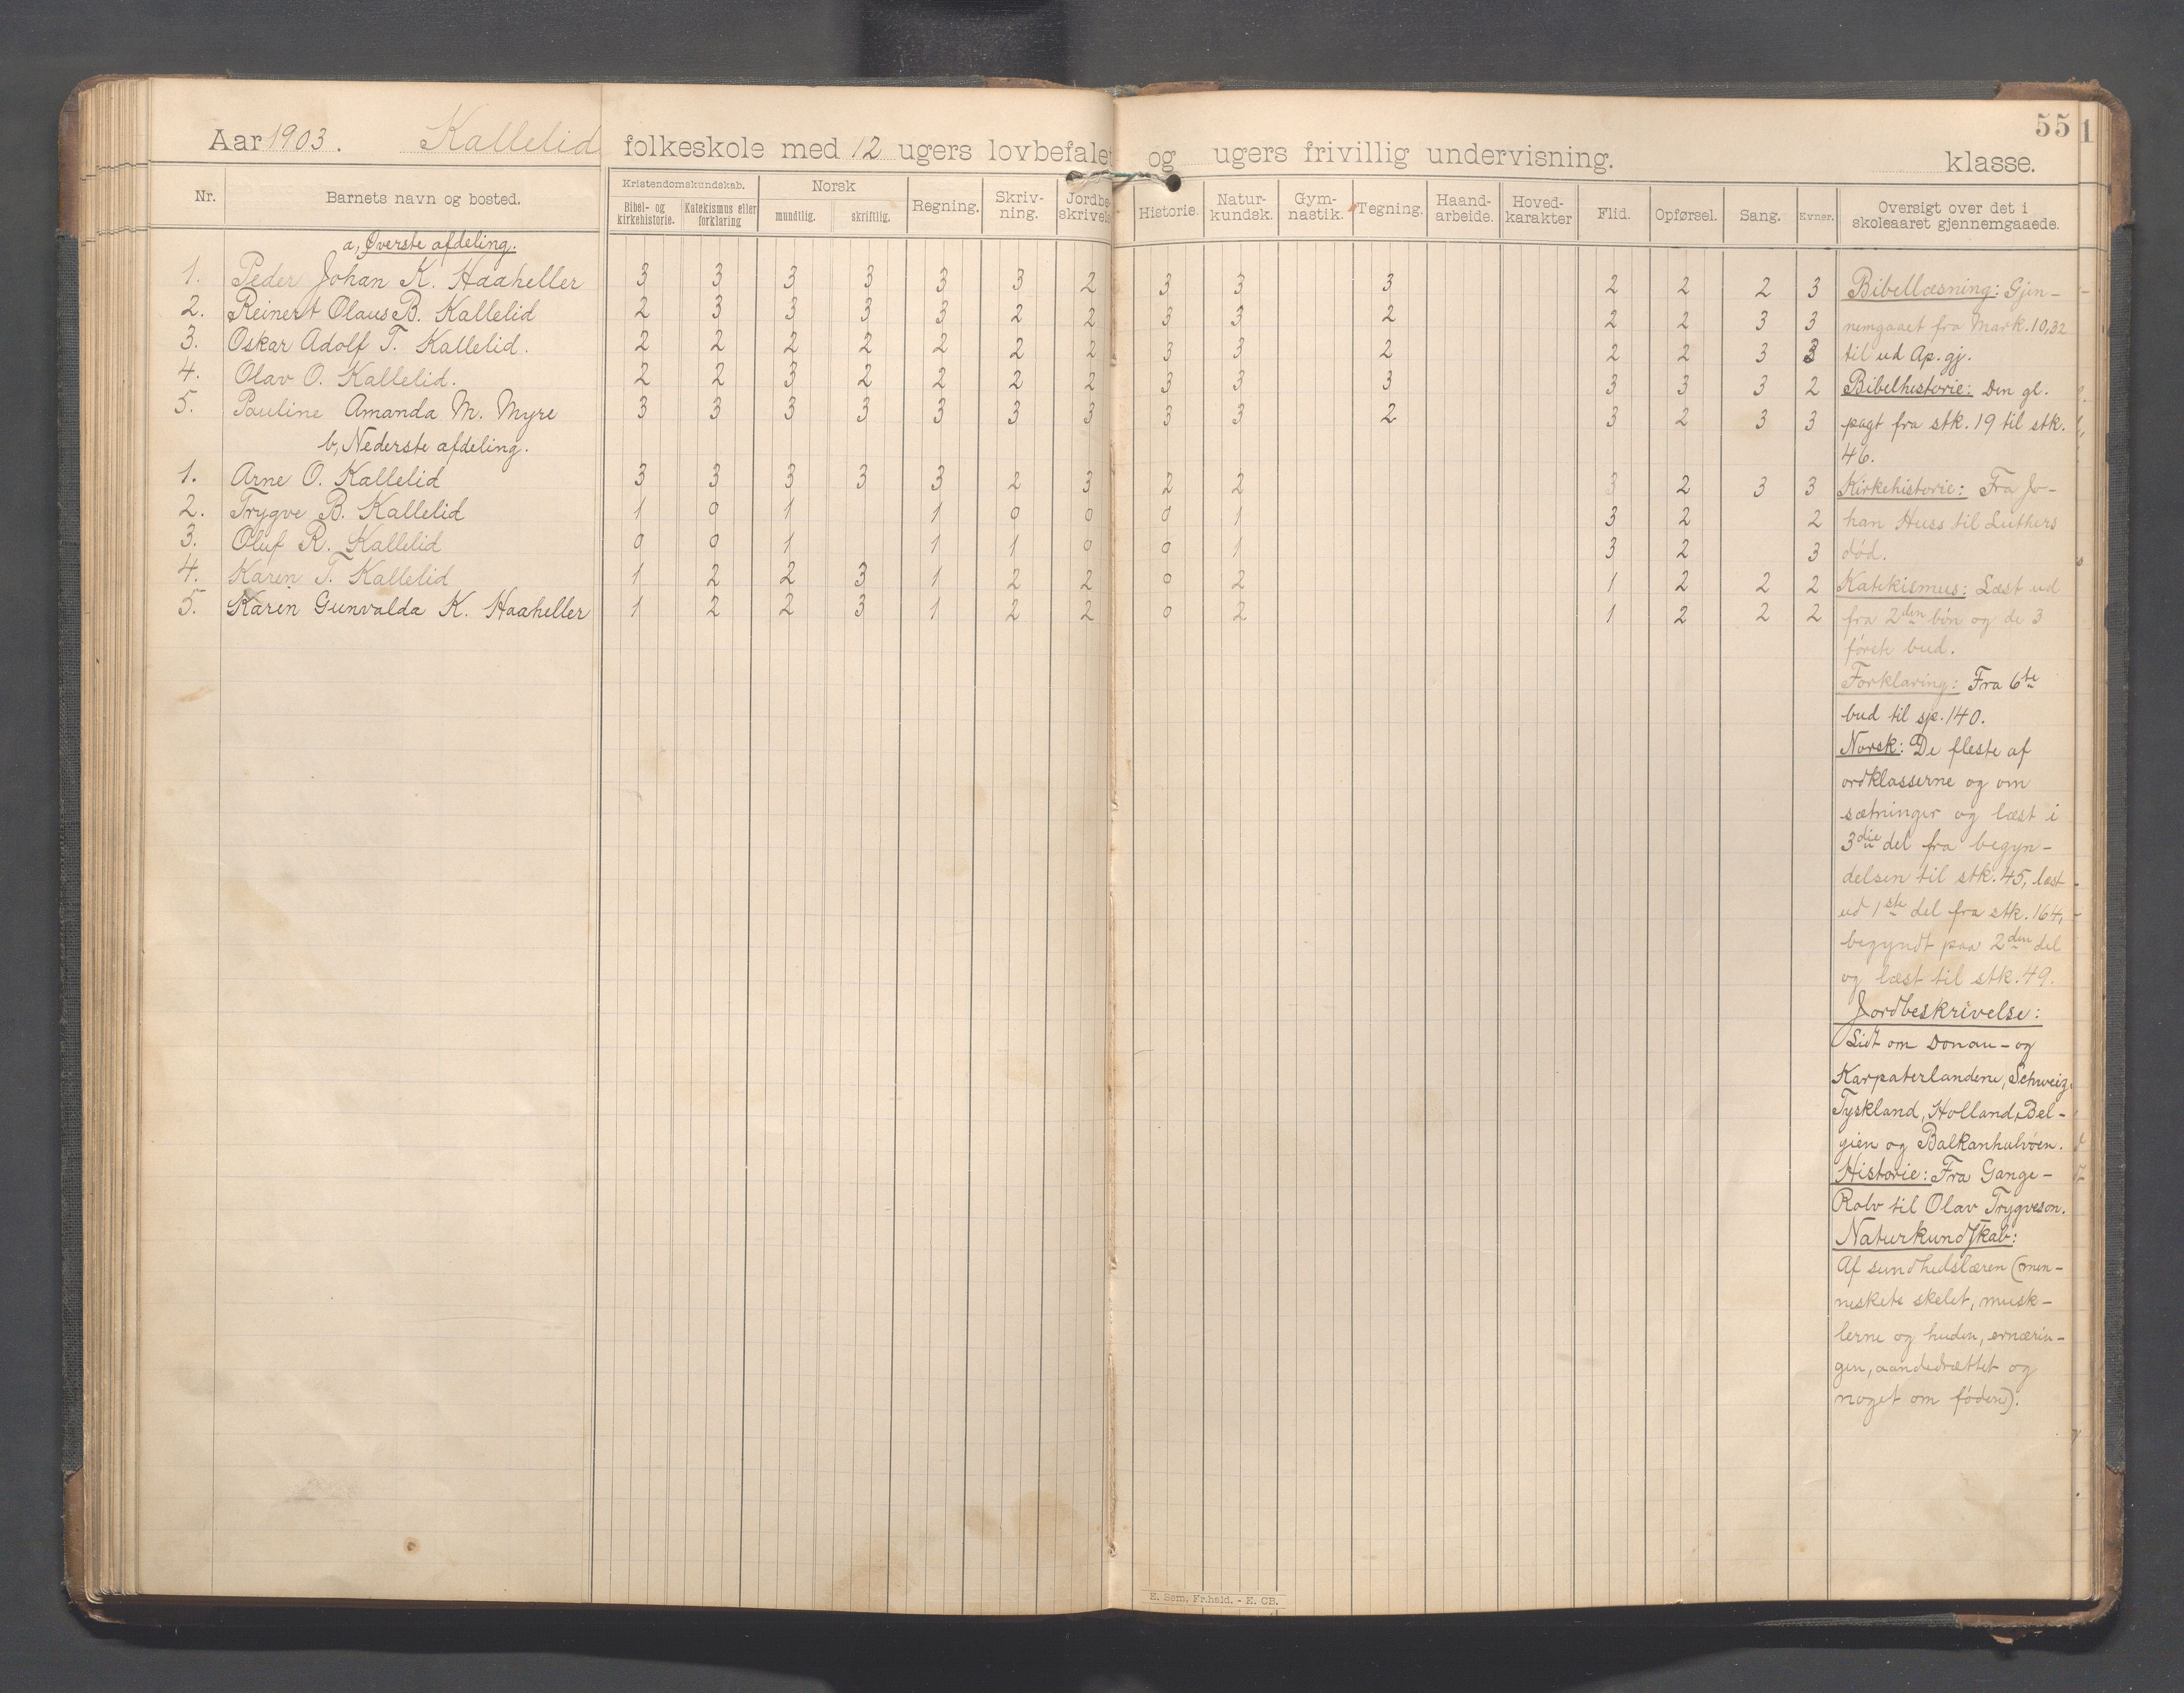 55 1
Aar 1903. Kallelid folkeskole med 12 ugers lovbefalet og ugers frivillig undervisning. klasse.
Nr. Barnets navn og bosted. Kristendomskundskab. Norsk Regning. Skriv-ning. Jordbe-skrivels Historie. Natur-kundsk. Gym-nastik. Tegning. Haand-arbeide. Hoved-karakter Flid. Opførsel. Sang. Evner. Oversigt over det i skoleaaret gjennemgaaede.
Bibel- og kirkehistorie. Katekismus eller forklaring mundtlig. skriftlig.
a, Øverste afdeling.
1. Peder Johan K. Haaheller 3 3 3 3 3 3 2 3 3 3 2 2 2 3
2. Reinert Olaus B. Kallelid 2 3 3 3 3 2 2 3 3 2 2 2 3 3
3. Oskar Adolf T. Kallelid. 2 2 2 2 2 2 2 3 3 2 2 2 3 3
4. Olav O. Kallelid. 2 2 3 2 2 2 2 3 3 3 3 3 3 2
5. Pauline Amanda M. Myre 3 3 3 3 3 3 3 3 3 2 3 2 3 3
b, Nederste afdeling.
1. Arne O. Kallelid 3 3 3 3 3 2 3 2 2 3 2 3 3
2. Trygve B. Kallelid 1 0 1 1 0 0 0 1 3 2 2
3. Oluf R. Kallelid 0 0 1 1 1 0 0 1 3 2 3
4. Karen T. Kallelid 1 2 2 3 1 2 2 0 2 1 2 2 2
5. Karin Gunvalda K. Haaheller 1 2 2 3 1 2 2 0 2 1 2 2 2
Bibellæsning: Gjen-
nemgaaet fra Mark. 10,32
til ud Ap. gj.
Bibelhistorie: Den gl.
pagt fra stk. 19 til stk.
46.
Kirkehistorie: Fra Jo-
han Huss til Luthers
død.
Katekismus: Læst ud
fra 2den bøn og de 3
første bud.
Forklaring: Fra 6te
bud til sp. 140.
Norsk: De fleste af
ordklasserne og om
sætninger og læst i
3die del fra begyn-
delsen til stk. 45, læst
ud 1ste del fra stk. 164,
begyndt paa 2den del
og læst til stk. 49.
Jordbeskrivelse:
Lidt om Donau- og
Karpaterlandene, Schweiz,
Tyskland, Holland, Bel-
gien og Balkanhalvøen.
Historie: Fra Gange-
Rolv til Olav Trygveson.
Naturkundskab:
Af sundhedslæren (men-
neskets skelet, musk-
lerne og huden, ernærin-
gen, aandedrættet og
noget om føden).
E. Sem, Fr.hald. - E. CB.